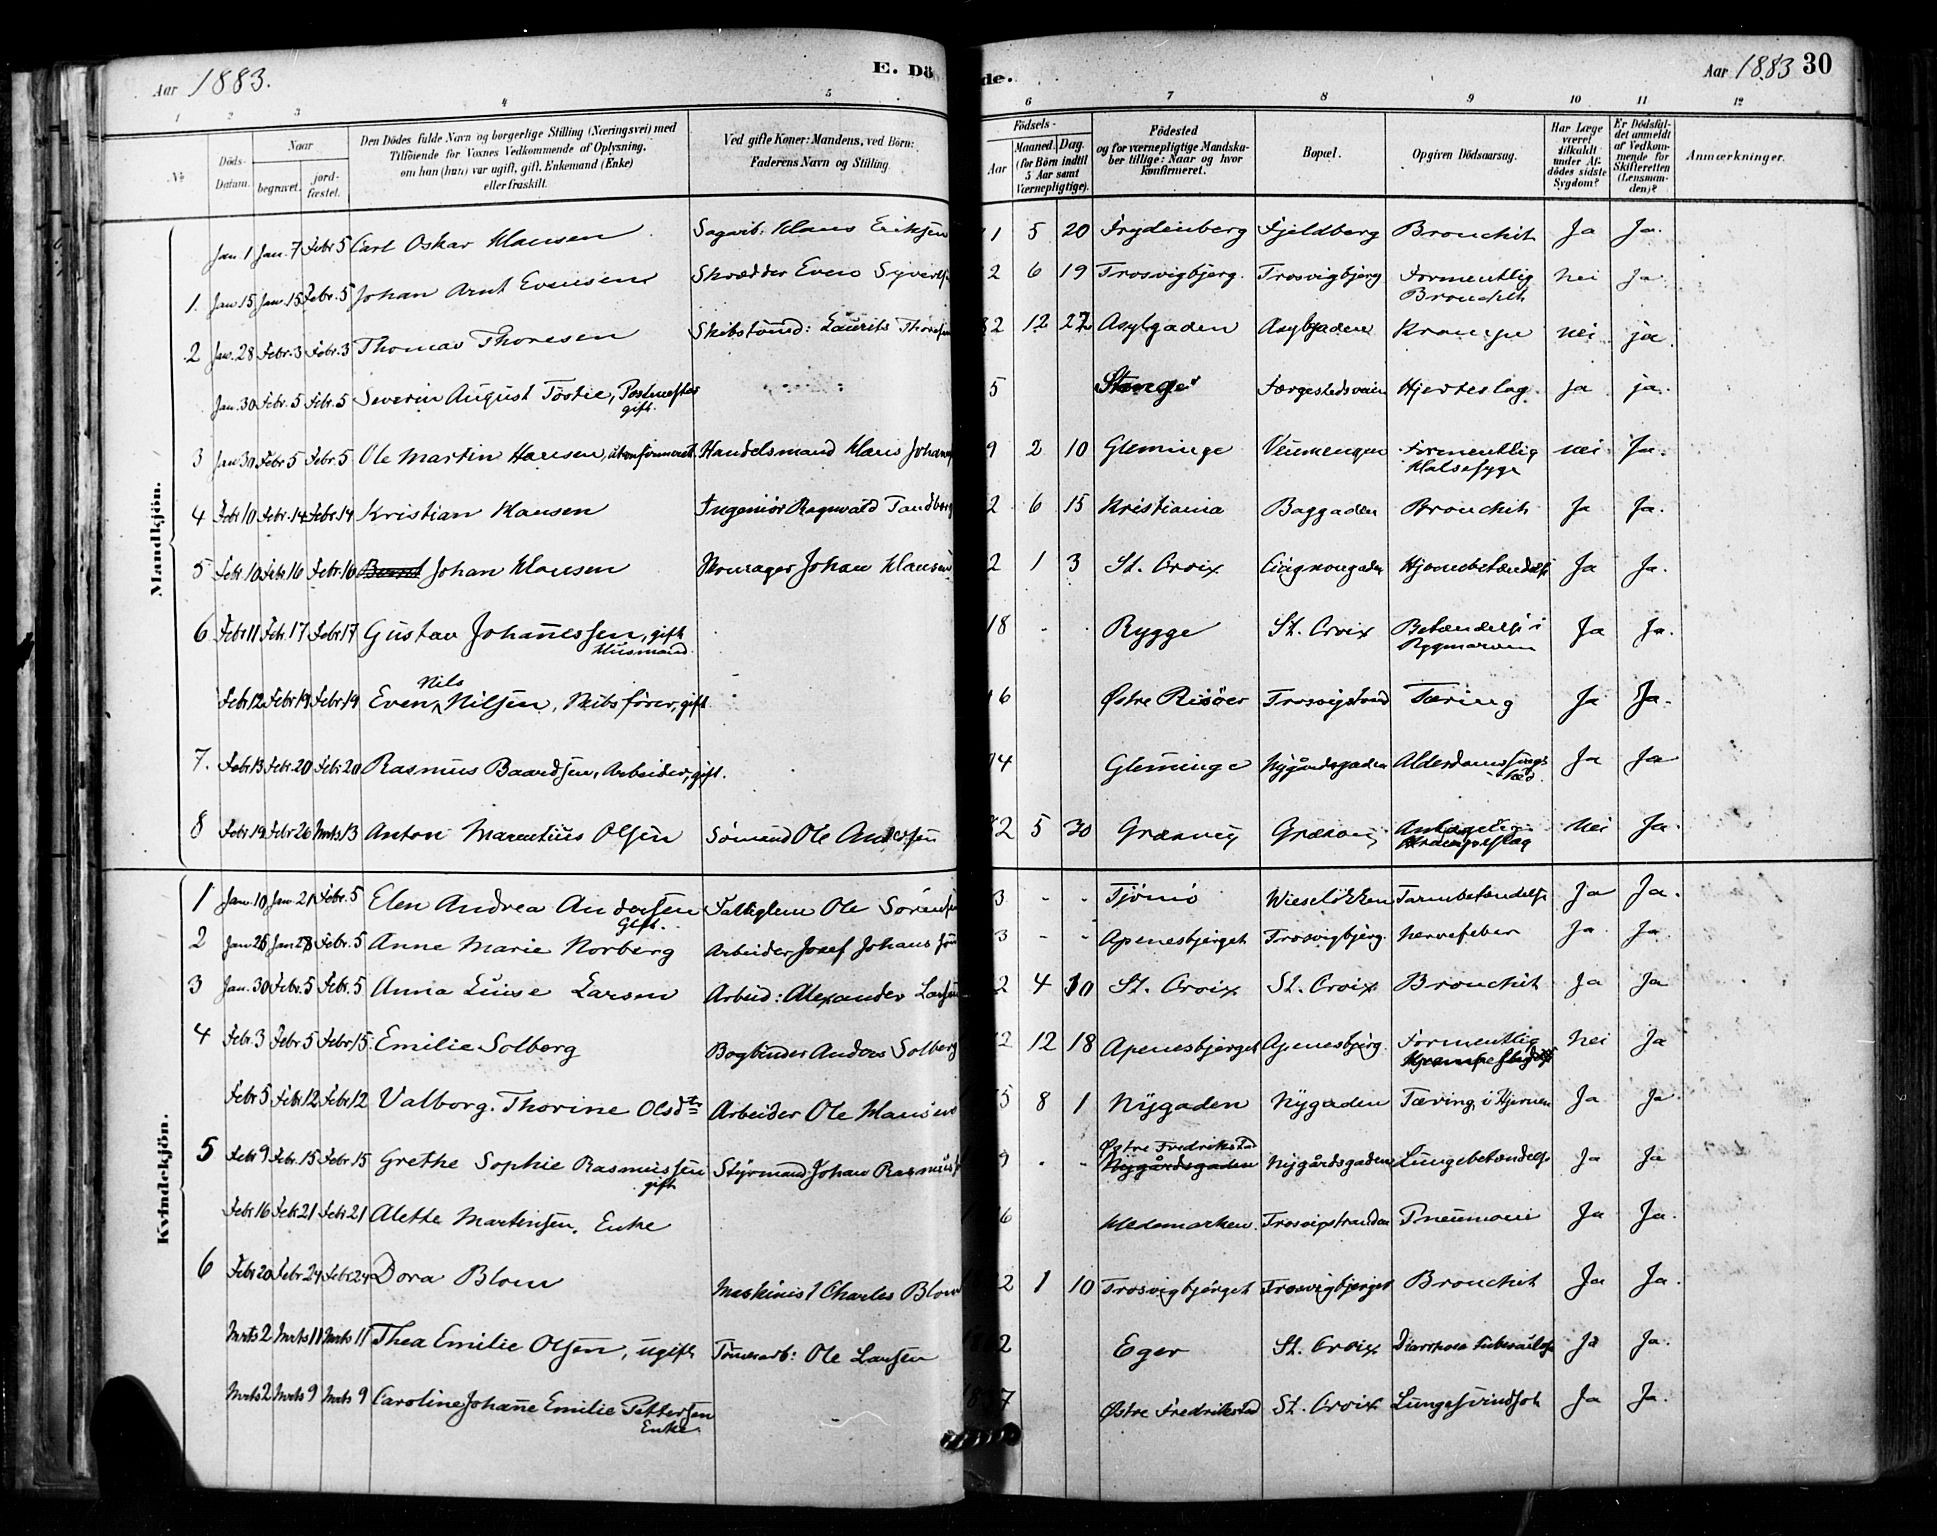 Aar 1883. E. Dö de. Aar 1883 30
1 2 3 4 5 6 7 8 9 10 11 12
No
Döds-Datum.
Naar
begravet.
jord-fæstet.
Den Dödes fulde Navn og borgerlige Stilling (Næringsvei) med
Tilföiende for Voxnes Vedkommende af Oplysning,
om han (hun) var ugift, gift, Enkemand (Enke)
eller fraskilt.
Ved gifte Koner: Mandens, ved Börn:
Faderens Navn og Stilling.
Födsels-
Aar
Maaned. Dag.
(for Börn indtil
5 Aar samt
Værnepligtige).
Födested
og for værnepligtige Mandska-
ber tillige: Naar og hvor
konfirmeret.
Bopæl.
Opgiven Dödsaarsag.
Har Læge
været
tilkaldt
under Af-
dödes sidste
Sygdom?
Er Dödsfal-
det anmeldt
af Vedkom-
mende for
Skifteretten
(Lensman-
den)?
Anmærkninger.
Mandkjön.
Jan. 1 Jan. 7 Febr. 5 Carl Oskar Hansen Sagarb. Hans Eriksen 1 5 20 Frydenberg Fjeldberg Bronchit Ja Ja.
1 Jan 15 Jan. 15 Febr. 5 Johan Arnt Evensen Skrædder Even Syverts 2 6 19 Trosvigbjerg. Trosvigbjerg Formentlig Bronchit Nei Ja.
2 Jan. 28 Febr. 3 Febr. 3 Thomas Thoresen Skibstömd: Laurits Thoresen 82 12 27 Asylgaden Asylgaden Krampe Nei ja.
Jan. 30 Febr. 5 Febr. 5 Severin August Tostie, Postmester gift. 5 Stange Færgestedsveien Hjerteslag. Ja ja.
3 Jan 30 Febr. 5 Febr. 5 Ole Martin Hansen, ukonfirmeret. Handelsmand Hans Johans 9 2 10 Gleminge Veumengen Formentlig Halsesyge Nei Ja.
4 Febr. 10 Febr. 14 Febr. 14 Kristian Hansen Ingeniör Ragnvald Tandberg 2 6 15 Kristiania Baggaden Bronchit Ja Ja.
5 Febr. 10 Febr. 16 Febr. 16 Johan Hansen Skomager Johan Hansen 2 1 3 St. Croix Hjernebetændelse Ja Ja.
6 Febr 11 Febr. 17 Febr 17 Gustav Johannessen, gift Husmand. 18 - - Rygge St. Croix Betændelse i Rygmarven Ja Ja.
Febr. 12 Febr 19 Febr 19 Even Nils Nilsen, Skibsförer, gift. 6 Østre Risöer Trosvigstrand Tæring Ja Ja.
7. Febr. 13 Febr. 20 Febr 20 Rasmus Baardsen, Arbeider, gift. 4 Gleminge Nygårdsgaden Ja Ja
8 Febr. 19 Febr 26 Mrts 13 Anton Marentius Olsen Sömand Ole Andersen 82 5 30 Græsvig Græsvig Nei Ja.
Kvindekjön.
1 Jan. 10 Jan. 21 Febr. 5 Elen Andrea Andersen Gift. Fattiglem Ole Sörensen 3 - - Tjömö Wieselökken Tarmbetændelse Ja Ja.
2 Jan 26 Jan 28 Febr. 5 Anne Marie Norberg Arbeider Josef Johans 3 - - Apenesbjerget Trosvigbjerg. Nervefeber Ja Ja.
3 Jan. 30 Febr. 5 Febr. 5 Anna Luise Larsen Arbeid: Alexander Larsen 2 4 10 St. Croix St. Croix Bronchit Ja Ja
4 Febr. 3 Febr. 5 Febr. 15. Emilie Solberg Bogbinder Anders Solberg 2 12 18 Apenesbjerget Apenesbjerg. Formentlig Nei Ja
Febr 5 Febr. 12 Febr 12 Valborg. Thorine Olsdtr Arbeider Ole Hansen 5 8 1 Nygaden Nygaden Tæring i Hjernen Ja Ja.
5 Febr. 9 Febr. 15 Febr. 15 Grethe Sophie Rasmussen gift Styrmand Johan Rasmuss 9 - - Østre Fredrikstad Nygårdsgaden Nygårdsgaden Lungebetændelse Ja Ja
Febr 16 Febr. 21 Febr 21 Alette Martinsen, Enke 6 Hedemarken. Trosvigstranden Pneumoni Ja Ja.
6 Febr. 20 Febr. 24 Febr. 24 Dora Blom Maskinist Charles Blom 2 1 10 Trosvigbjerget Trosvigbjerget Bronchit Ja Ja.
Mrts 2 Mrts 11 Mrts 11 Thea Emilie Olsen, ugift Tömrarb: Ole Larsen 2 Eger St. Croix Ja Ja.
Mrts 2 Mrts 9 Mrts 9 Caroline Johanne Emilie Pettersen Enke. 7 Østre Fredrikstad St. Croix Lungesvindsot Ja Ja.